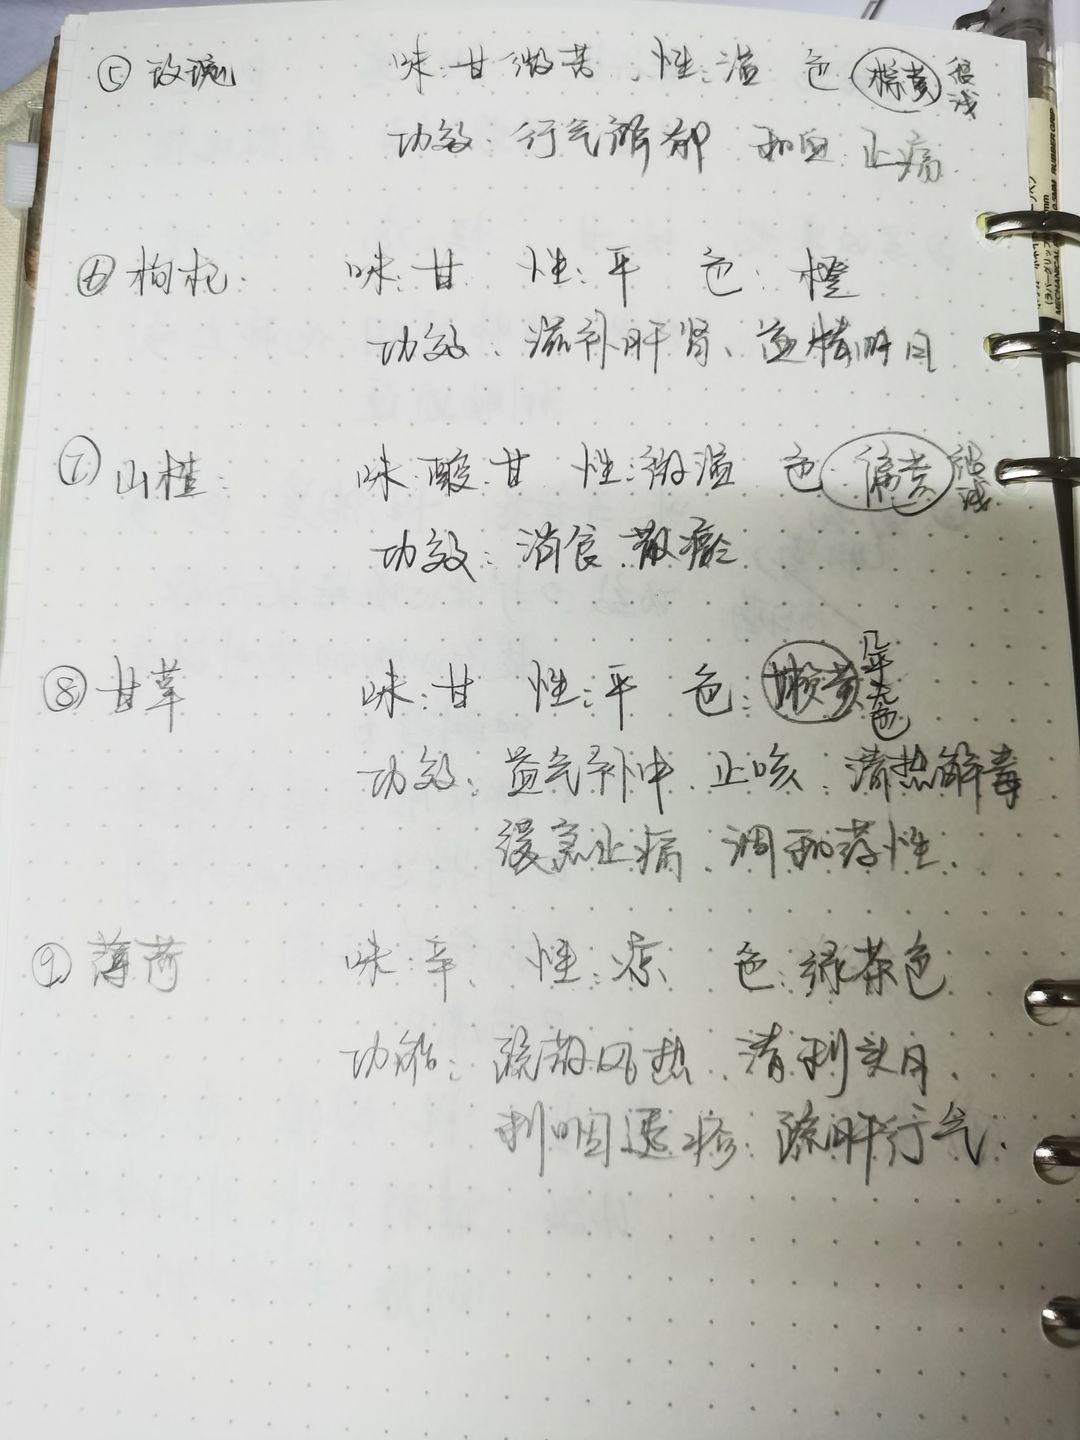 ⑤ 玫瑰 味:甘微苦 性:温 色 棕黄 很浅
功效:行气解郁 和血 止痛
⑥ 枸杞: 味:甘 性:平 色:橙
功效:滋补肝肾、益精明目
⑦ 山楂: 味:酸.甘 性:微温 色 偏黄 很浅
功效:消食 散瘀
⑧ 甘草 味:甘 性:平 色:嫩黄 几乎无色
功效:益气补中.止咳.清热解毒
缓急止痛.调和药性.
⑨ 薄荷 味:辛 性:凉 色:绿茶色
功能:疏散风热.清利头目.
利咽透疹.疏肝行气.
RUBBER GRIP
0.5MM
MECHANICAL